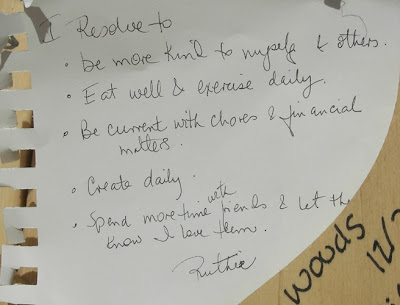 I Resolve to
• be more kind to myself & others.
• Eat well & exercise daily.
• Be current with chores & financial
matters.
• Create daily.
• Spend more time with friends & let the
know I love them.
Ruthie
woods
12/